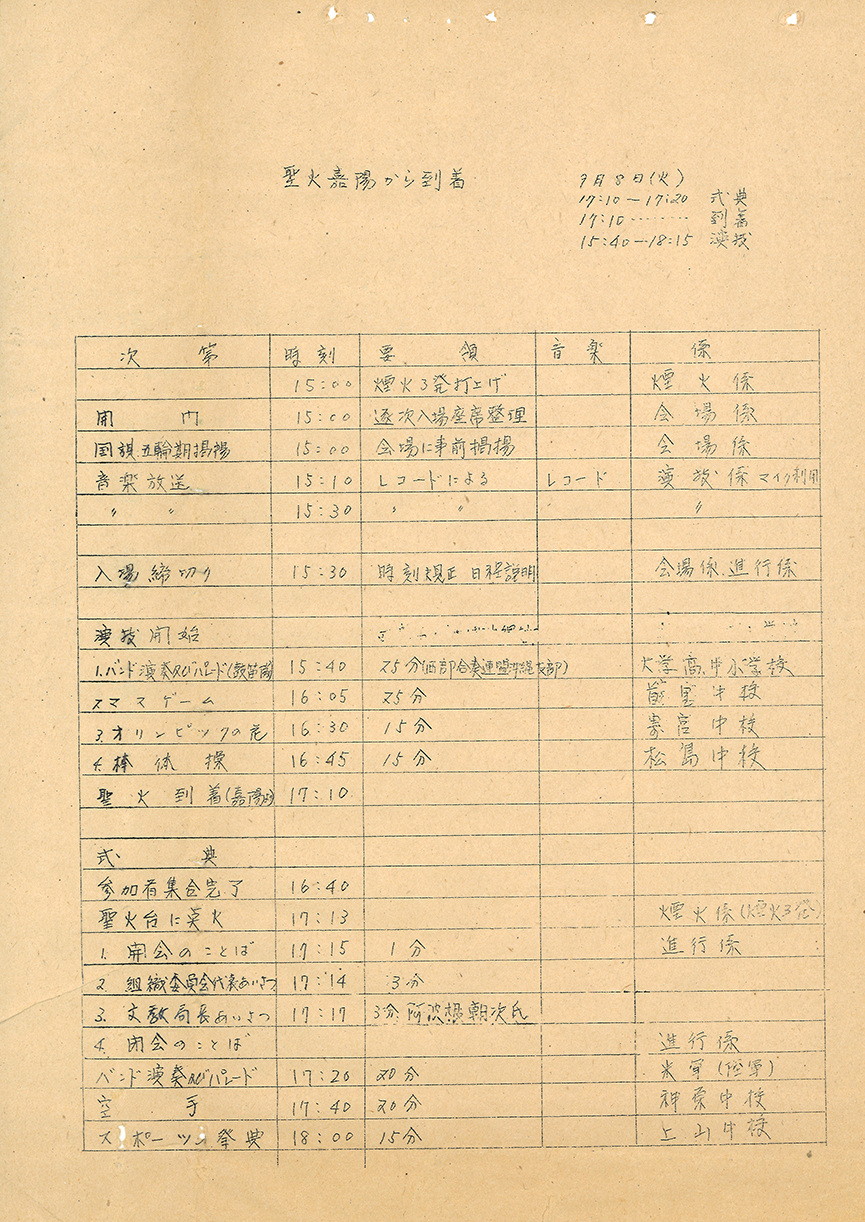 聖火嘉陽から到着
9月8日(火)
17:10—17:20 式典
17:10‥‥‥‥ 到着
15:40—18:15 演技
次 第 時刻 要 領 音楽 係
15:00 煙火3発打上げ 煙火係
開 門 15:00 逐次入場座席整理 会場係
国旗五輪期掲揚 15:00 会場に事前掲揚 会場係
音楽放送 15:10 レコードによる レコード 演技係 マイク利用
〃 〃 15:30 〃 〃 〃
入場締切り 15:30 時刻規正 日程説明 会場係 進行係
演技開始
1.バンド演奏及びパレード(鼓笛隊) 15:40 25分(西部合奏連盟沖縄支部) 大学高中小学校
2 マスゲーム 16:05 25分 中校
3.オリンピックの花 16:30 15分 寄宮中校
4.棒体操 16:45 15分 松島中校
聖火到着(嘉陽より) 17:10
式 典
参加者集合完了 16:40
聖火台に点火 17:13 煙火係(煙火3発)
1. 開会のことば 17:15 1分 進行係
2 組織委員会代表あいさつ 17:14 3分
3. 文教局長あいさつ 17:17 3分 阿波根朝次氏
4. 閉会のことば 進行係
バンド演奏及びパレード 17:20 20分 米軍(陸軍)
空 手 17:40 20分 神原中校
スポーツの祭典 18:00 15分 上山中校